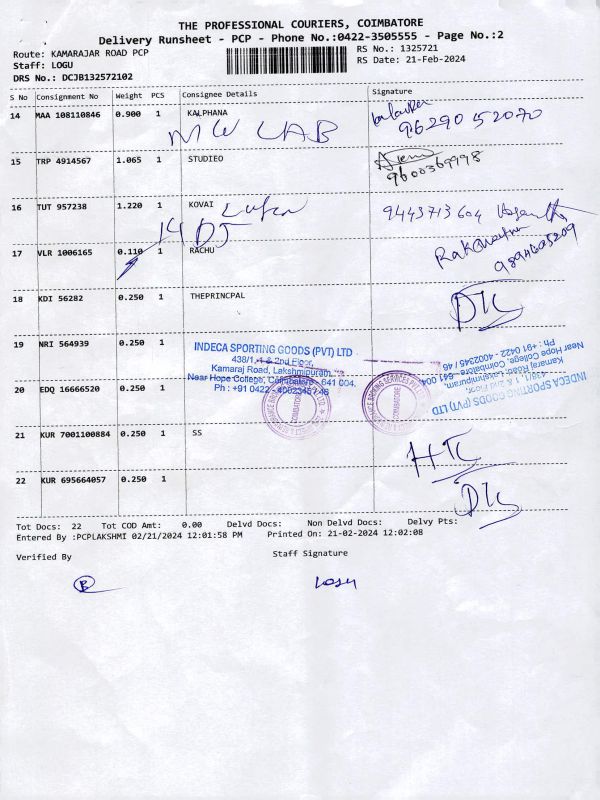 THE PROFESSIONAL COURIERS, COIMBATORE
Delivery Runsheet - PCP - Phone No.:0422-3505555 - Page No.:2
Route: KAMARAJAR ROAD PCP
RS No.: 1325721
Staff: LOGU
RS Date: 21-Feb-2024
DRS No.: DCJB132572102
S No Consignment No Weight PCS Consignee Details Signature
14 MAA 108110846 0.900 1 KALPHANA
MW LAB
96290 52070
15 TRP 4914567 1.065 1 STUDIEO
9600369998
16 TUT 957238 1.220 1 KOVAI
9443713604
17 VLR 1006165 0.110 1 RACHU
18 KDI 56282 0.250 1 THEPRINCPAL
19 NRI 564939 0.250 1
INDECA SPORTING GOODS (PVT) LTD
438/1, 1 & 2nd Floor,
Kamaraj Road, Lakshmipuram,
Near Hope College, Coimbatore - 641 004.
Ph : +91 0422 - 4002345 / 46
INDECA SPORTING GOODS (PVT) LTD
438/1, 1 & 2nd Floor,
Kamaraj Road, Lakshmipuram,
Near Hope College, Coimbatore - 641 004.
Ph : +91 0422- 4002345 / 46
20 EDQ 16666520 0.250 1
COIMBATORE
COIMBATORE
21 KUR 7001100884 0.250 1 SS
22 KUR 695664057 0.250 1
Tot Docs: 22 Tot COD Amt: 0.00 Delvd Docs: Non Delvd Docs: Delvy Pts:
Entered By :PCPLAKSHMI 02/21/2024 12:01:58 PM Printed On: 21-02-2024 12:02:08
Verified By
Staff Signature
B
Logu